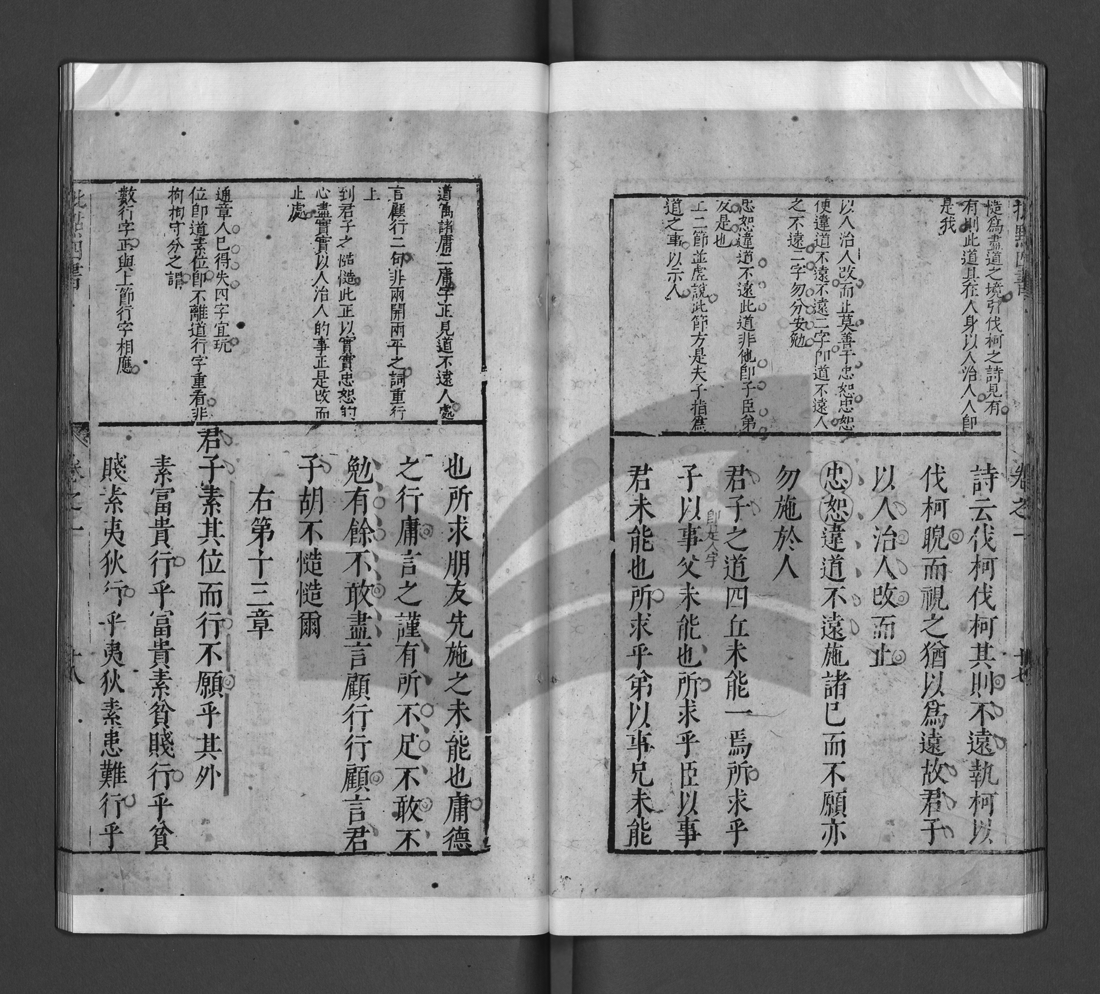 慥爲盡道之境引伐柯之詩見有
有則此道具在人身以人治人人卽
是我
以人治人改而止莫善于忠恕忠恕
便違道不遠不遠二字卽道不遠人
之不遠二字勿分安勉
忠恕違道不遠此道非他卽子臣弟
友是也
上二節並虛說此節方是夫子指爲
道之事以示人
詩云伐柯伐柯其則不遠執柯以
伐柯睨而視之猶以爲遠故君子
以人治人改而止
忠恕違道不遠施諸己而不願亦
勿施於人
君子之道四丘未能一焉所求乎
子以事父未能也所求乎臣以事
君未能也所求乎弟以事兄未能
卷之一
道寓諸庸二庸字正見道不遠人處
言顧行二句非兩開兩平之詞重行
上
到君子之慥慥此正以實實忠恕的
心盡實實以人治人的事正是改而
止處
通章人已得失四字宜玩
位卽道素位卽不離道行字重看非
拘拘守分之謂
數行字正與上節行字相應
也所求朋友先施之未能也庸德
之行庸言之謹有所不足不敢不
勉有餘不敢盡言顧行行顧言君
子胡不慥慥爾
右第十三章
君子素其位而行不願乎其外
素富貴行乎富貴素貧賤行乎貧
賤素夷狄行乎夷狄素患難行乎
卷之一
十八